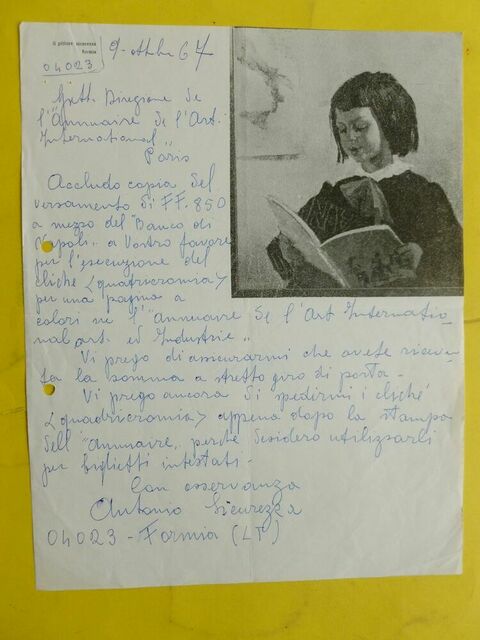 il pittore sicurezza
formia
04023
9-ottobre 67
Spett. Direzione de
l'"Annuaire de l'Art
International"
Paris
Accludo copia del
versamento di FF. 850
a mezzo del "Banco di
Napoli" a Vostro favore
per l'esecuzione del
cliché (quadricromia)
per una pagina a
colori ne l'"Annuaire de l'Art Internatio-
nal art. ed Industrie"
Vi prego di assicurarmi che avete ricevu-
ta la somma a stretto giro di posta-
Vi prego ancora di spedirmi i cliché
(quadricromia) appena dopo la stampa
dell'"annuaire" perché desidero utilizzarli
per biglietti intestati-
Con osservanza
Antonio Sicurezza
04023-Formia (LT)